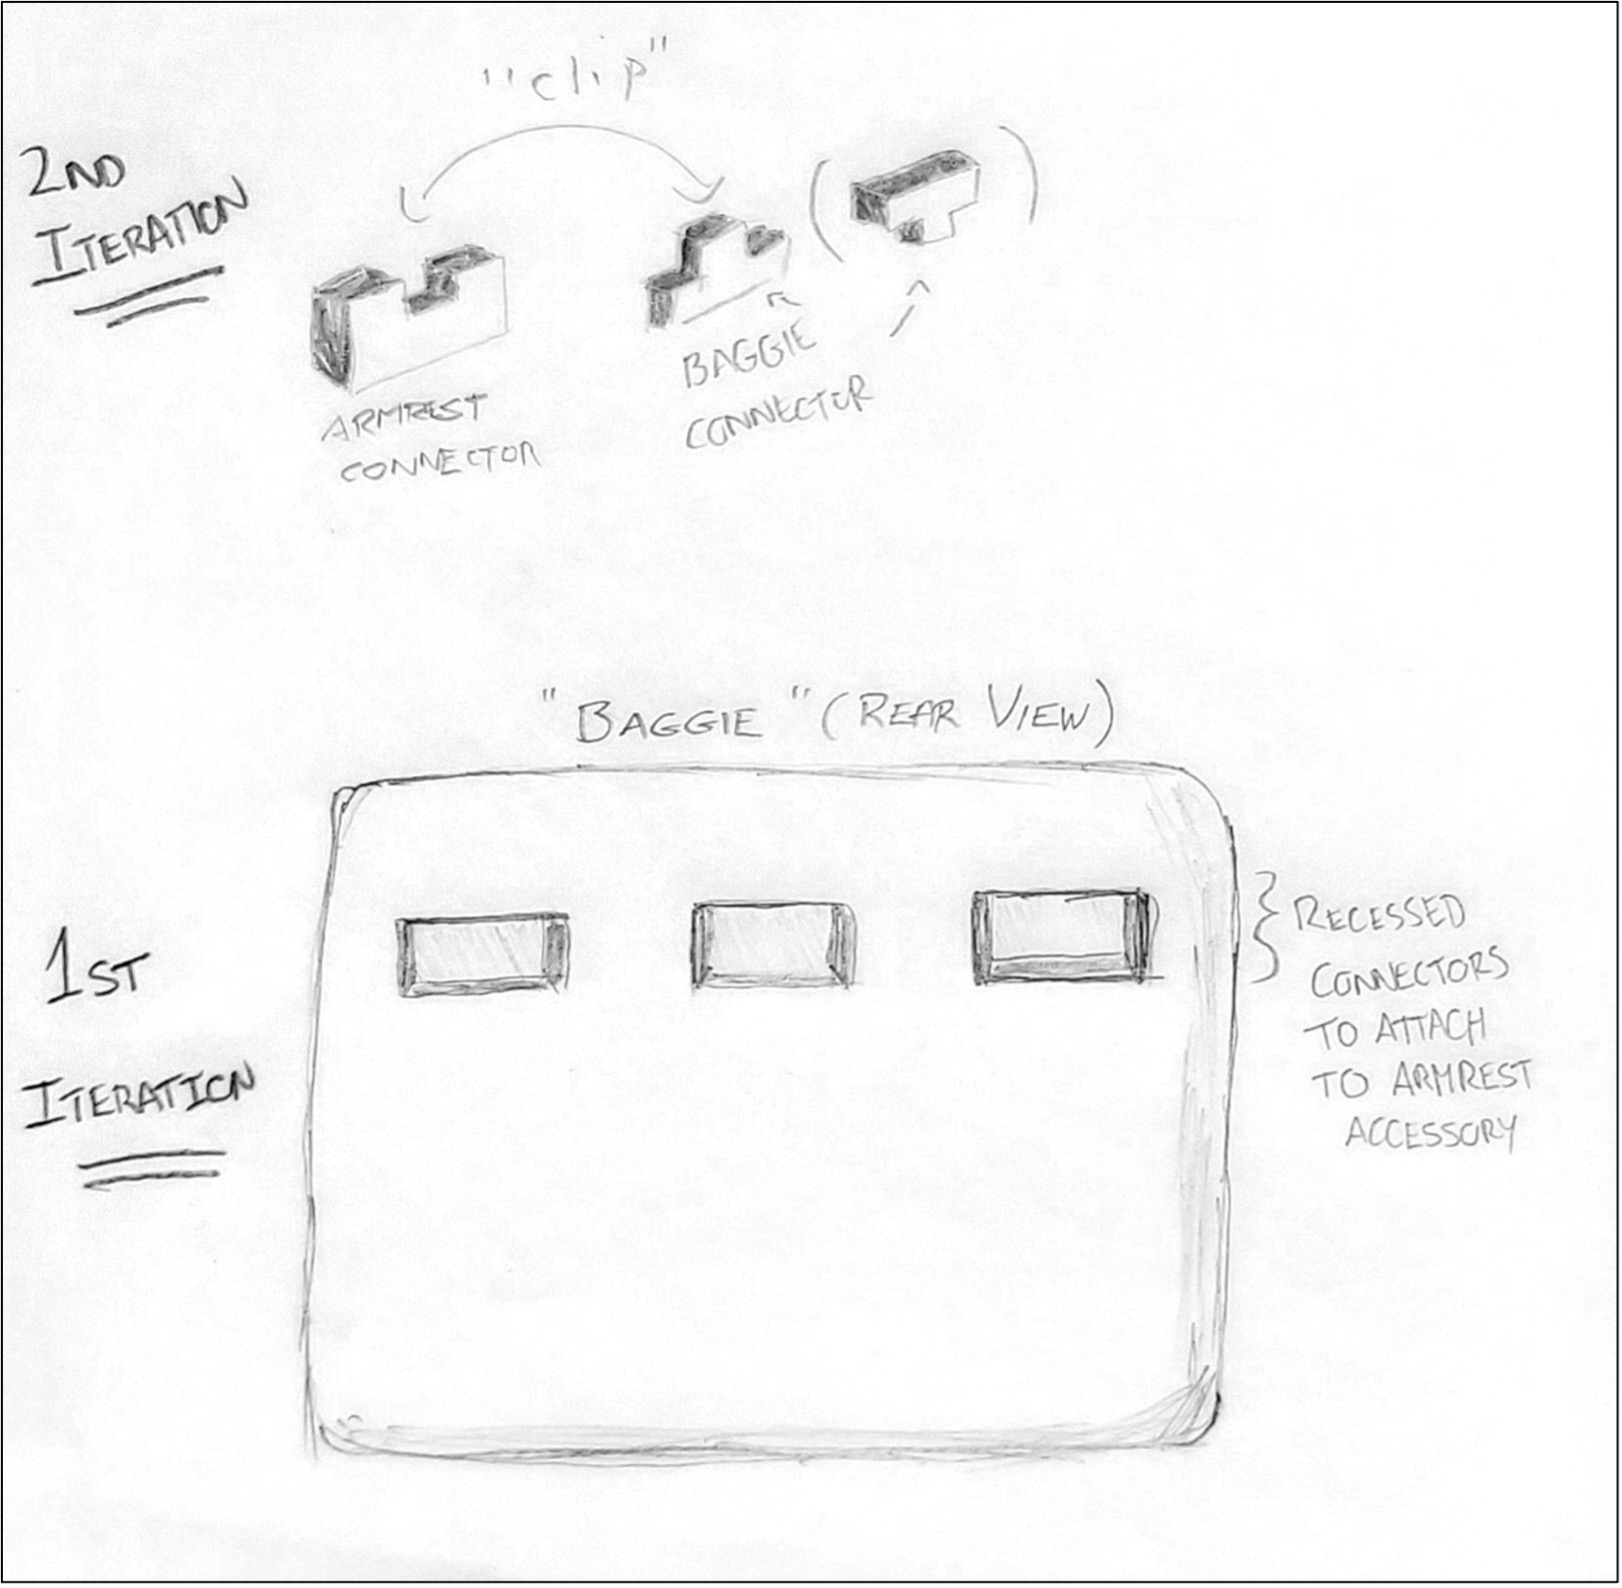 "clip"
2ND
ITERATION
ARMREST
CONNECTOR
BAGGIE
CONNECTOR
"BAGGIE" (REAR VIEW)
1ST
ITERATION
RECESSED
CONNECTORS
TO ATTACH
TO ARMREST
ACCESSORY